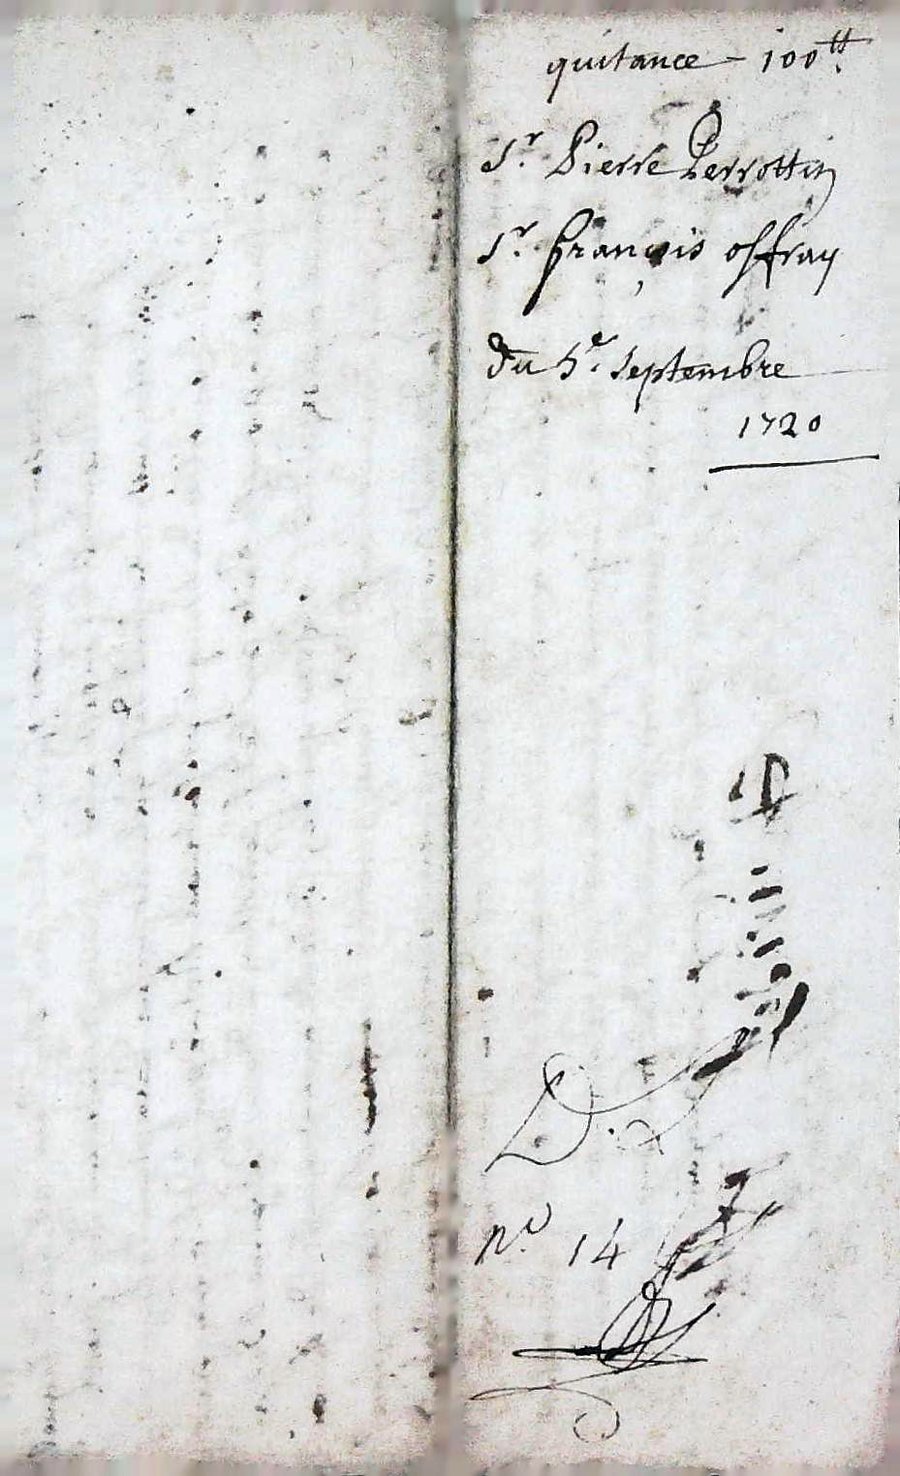 quitance - 100 tt.
Sr. Pierre Perrottin
Sr. françois offray
du 5e. Septembre
1720
D.
no. 14